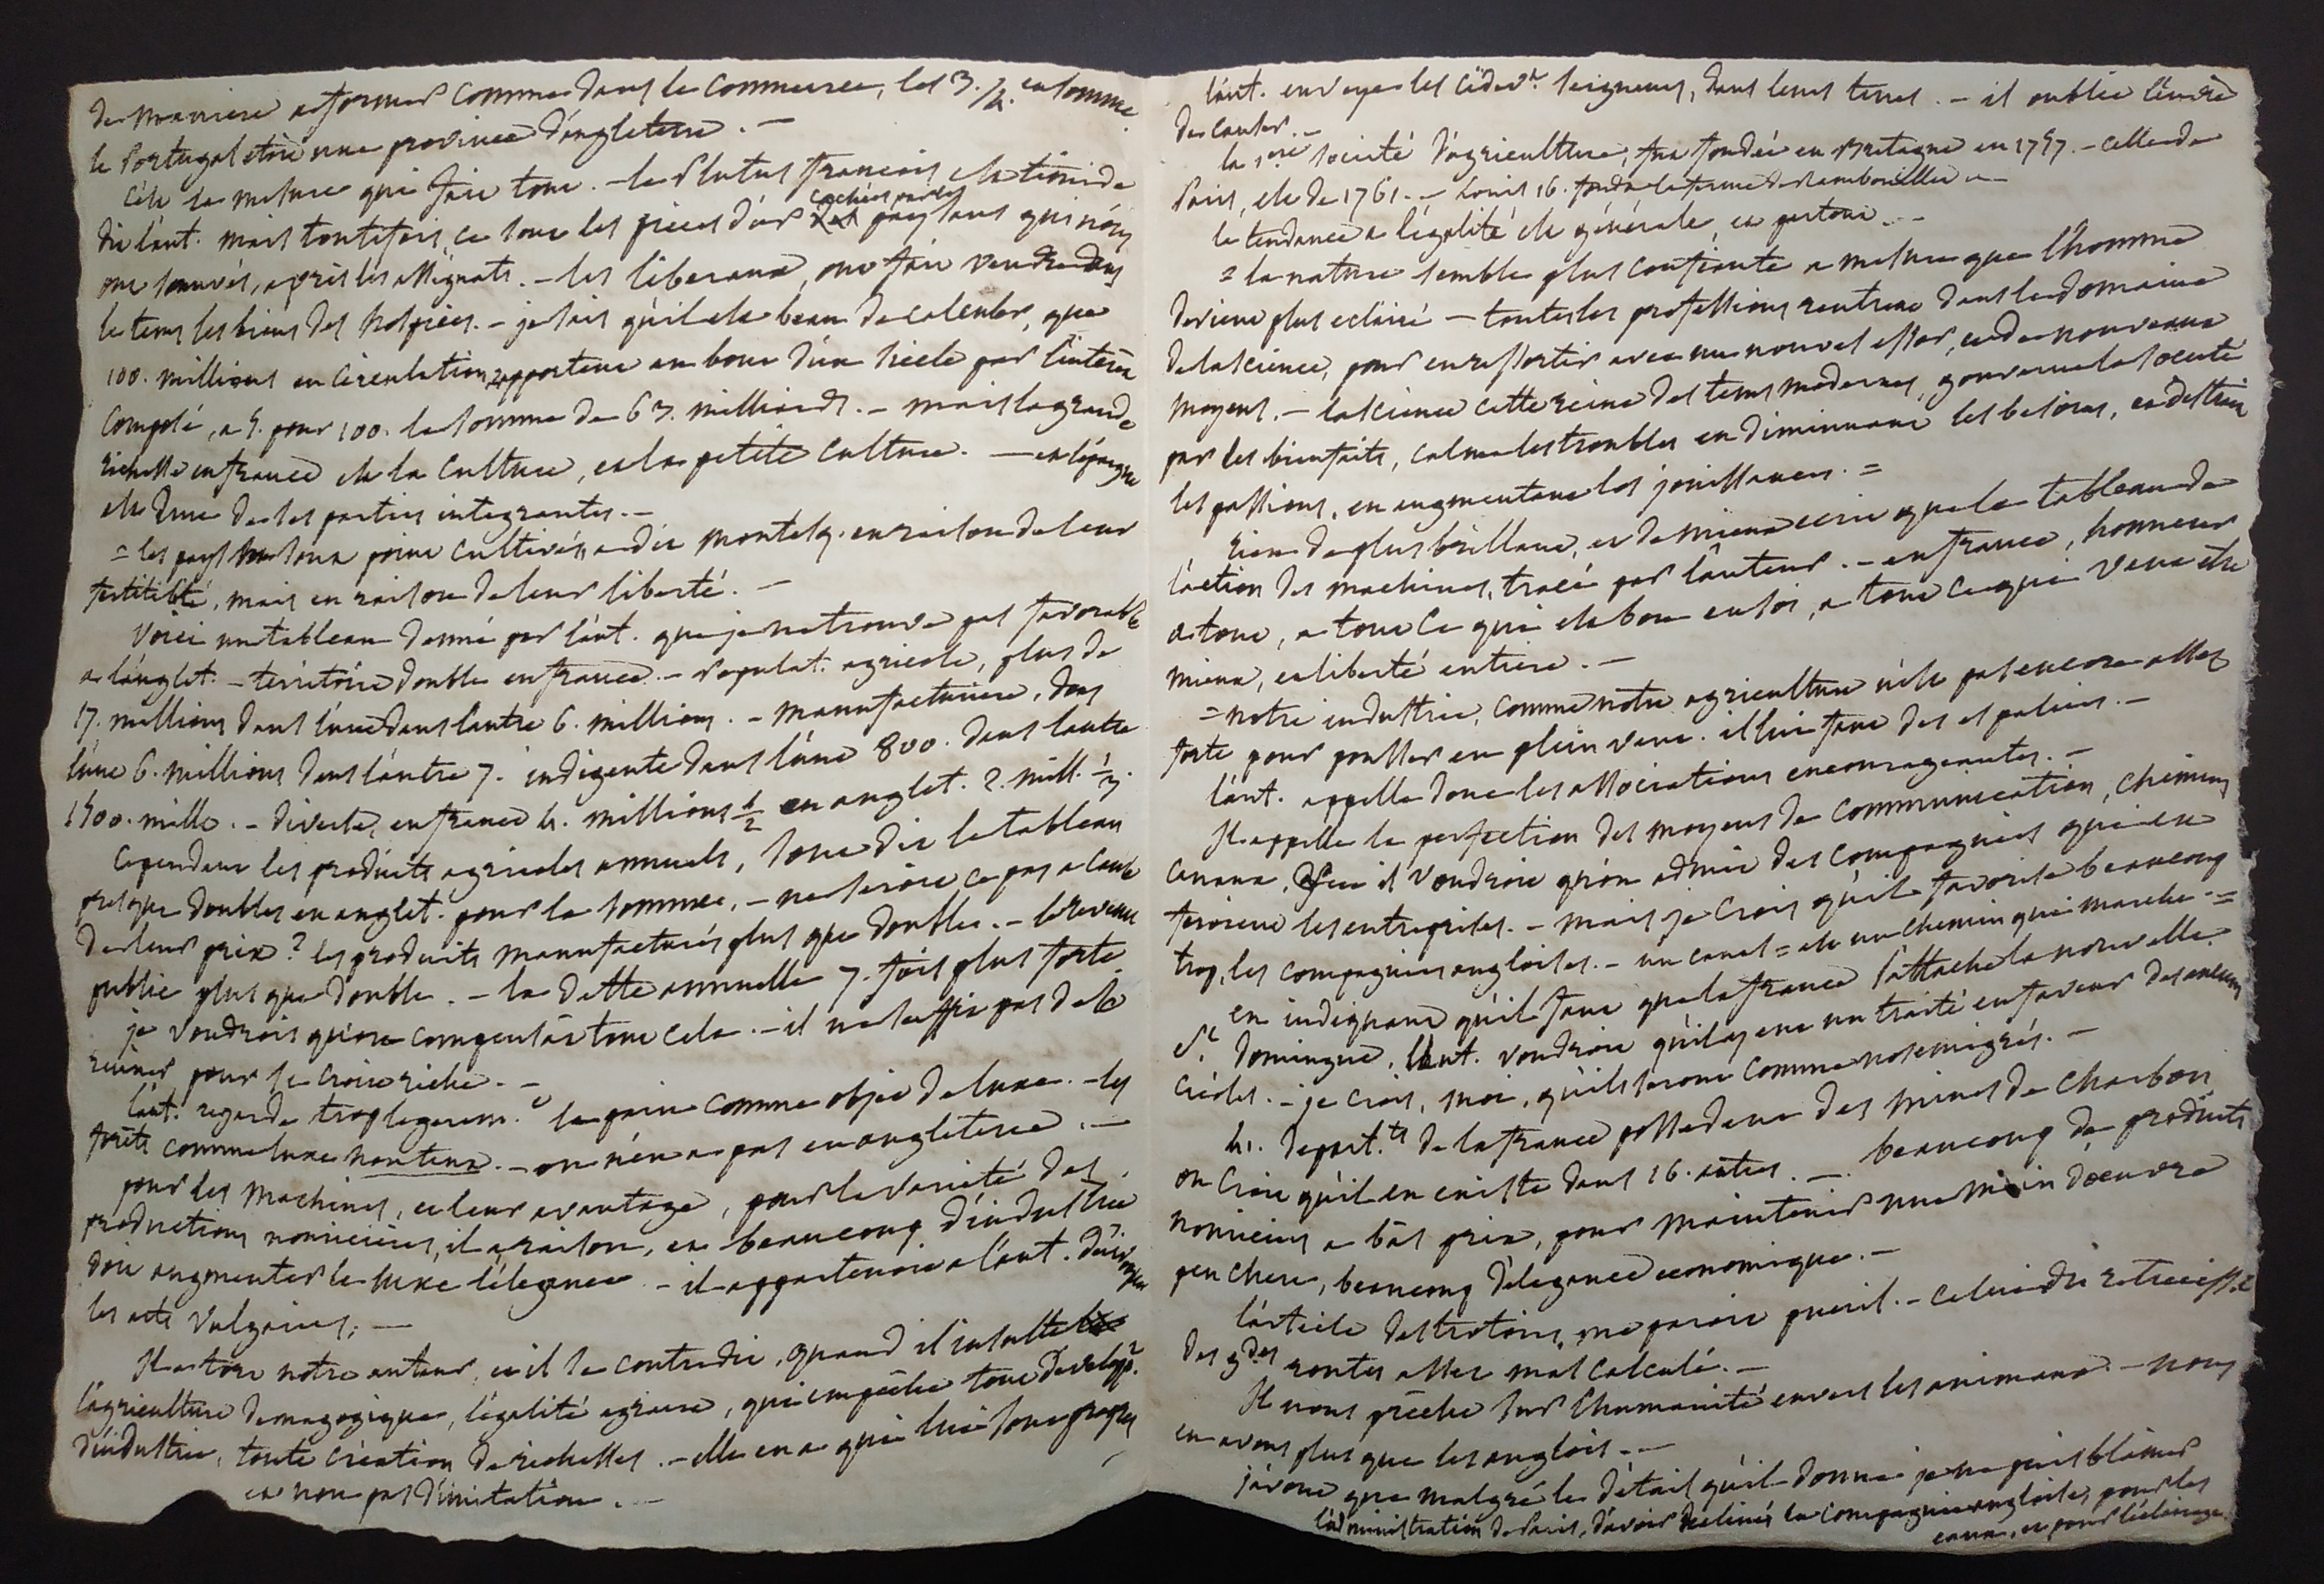 de maniere a former comme dans le commerce, les 3./4. en somme
le Portugal etoit une province d'angleterre. —
c'est la mesure qui fait tout. — le Plutus francois est timide
dit l'aut. mais toutefois, ce sont les pieces d'or cachées par les paysans qui nous
ont sauvés, après les assignats. — les liberaux, ont fait vendre dans
le tems les biens des hospices. — je sais qu'il est beau de calculer, que
100. millions en circulation, rapportent au bout d'un siecle par l'interest
composé, a 5. pour 100. la somme de 63. milliards. — mais la grande
richesse en france est la culture, et la petite culture. — et l'épargne
est une de ses parties integrantes. —
= les pays ne sont point cultivés, a dit montesq. en raison de leur
fertilité, mais en raison de leur liberté. —
Voici un tableau donné par l'aut. que je ne trouve pas favorable
a l'anglet. — territoire double en france. — populat. agricole, plus de
17. millions dans l'une dans l'autre 6. millions. — manufacturiere, dans
l'une 6. millions dans l'autre 7. indigente dans l'une 800. dans l'autre
1500. mille. — diverses, en france 4. millions 1/2 en anglet. 2. mill. 1/3.
Cependant les produits agricoles annuels, sont dit le tableau
presque doubles en anglet. pour la somme, — ne seroit ce pas a cause
de leur prix? les produits manufacturés plus que doubles. — le revenu
public plus que double. — la dette annuelle 7. fois plus forte
je voudrois qu'on compensât tout cela. — il ne suffit pas de se
ruiner pour se croire riche. —
l'aut. regarde trop legerem.t le pain comme objet de luxe. — les
forêts comme luxe honteux. — on n'en a pas en angleterre. —
pour les machines, et leur avantage, pour la varieté des
productions nourricieres, il a raison, et beaucoup d'industrie
doit augmenter le luxe l'élegance — il appartenoit a l'aut.
les arts vulgaires; —
Il a tort notre auteur, et il se contredit, quand il insulte
l'agriculture demagogique, l'égalité agraire, qui empêche tout develop.t
d'industrie, toute création de richesses. — elle en a qui lui sont propres
et non pas d'imitation. —
l'aut. envoye les cidev.t seigneurs, dans leurs terres. — il oublie
de
la 1ere societé d'agriculture, fut fondée en Bretagne en 1757. — celle de
Paris, est de 1761. — Louis 16. fonda la ferme de Rambouillet —
la tendance a l'égalité est générale, et partout. —
= la nature semble plus confiante a mesure que l'homme
devient plus eclairé — toutes les professions rentrent dans le domaine
de la science, pour en ressortir avec un nouvel essor, et de nouveaux
moyens. — la science cette reine des tems modernes, gouverne la societé
par ses bienfaits, calme les troubles en diminuant les besoins, et détruit
les passions, en augmentant les jouissances. =
rien de plus brillant, et de mieux ecrit que le tableau de
l'action des machines, tracé par l'auteur. — en france, honneur
a tout, a tout ce qui est bon en soi, a tout ce qui veut être
mieux, et liberté entiere. —
= notre industrie, comme notre agriculture n'est pas encore assez
forte pour pousser en plein vent. il lui faut des espaliers. —
l'aut. appelle donc les associations encourageantes. —
Il appelle la perfection des moyens de communication, chemins
canaux, il voudroit qu'on admit des compagnies qui en
feroient les entreprises. — mais je crois qu'il favorise beaucoup
trop, les compagnies angloises. — un canal = est un chemin qui marche. =
en indiquant qu'il faut que la france s'attache la nouvelle
St. Domingue, l'aut. voudroit qu'il y eut un traité en faveur des anciens
créoles. — je crois, moi, qu'ils seront comme nos emigrés. —
41. depart.ts de la france possedent des mines de charbon
on croit qu'il en existe dans 16. autres. — beaucoup de produits
nourriciers a bas prix, pour maintenir une main d'oeuvre
peu chere, beaucoup d'élegance economique. —
l'article des trotoirs, me paroit pueril. — celui du retrecissem.t
des g.des routes assez mal calculé. —
Il nous prêche sur l'humanité envers les animaux. — nous
en avons plus que les anglois. —
j'avoue que malgré le détail qu'il donne je ne puis blâmer
l'administration de Paris, d'avoir decliné la compagnie angloise, pour les
eaux, et pour l'éclairage.